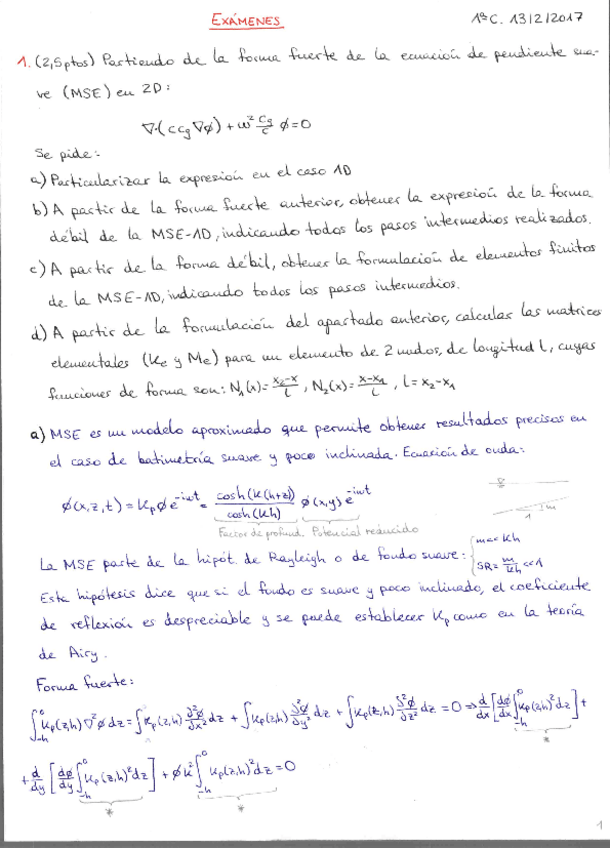 EXÁMENES
1ºC. 13/2/2017
1. (2,5ptos) Partiendo de la forma fuerte de la ecuación de pendiente sua-
ve (MSE) en 2D:
∇·(ccg∇ϕ)+ω² cg/c ϕ=0
Se pide:
a) Particularizar la expresión en el caso 1D
b) A partir de la forma fuerte anterior, obtener la expresión de la forma
débil de la MSE-1D, indicando todos los pasos intermedios realizados.
c) A partir de la forma débil, obtener la formulación de elementos finitos
de la MSE-1D, indicando todos los pasos intermedios.
d) A partir de la formulación del apartado anterior, calcular las matrices
elementales (Ke y Me) para un elemento de 2 nudos, de longitud l, cuyas
funciones de forma son: N₁(x)=(x₂-x)/l, N₂(x)=(x-x₁)/l, l=x₂-x₁
a) MSE es un modelo aproximado que permite obtener resultados precisos en
el caso de batimetría suave y poco inclinada. Ecuación de onda:
ϕ(x,z,t)=Kpϕe^-iωt = cosh(K(h+z))/cosh(Kh) ϕ(x,y)e^-iωt
Factor de profund. Potencial reducido
1 m
La MSE parte de la hipót. de Rayleigh o de fondo suave: { m<< Kh
SR= m/Kh <<1
Esta hipótesis dice que si el fondo es suave y poco inclinado, el coeficiente
de reflexión es despreciable y se puede establecer Kp como en la teoría
de Airy.
Forma fuerte:
∫₋ₕ⁰ Kp(z,h)∇²ϕdz=∫Kp(z,h) ∂²ϕ/∂x² dz + ∫Kp(z,h) ∂²ϕ/∂y² dz + ∫Kp(z,h) ∂²ϕ/∂z² dz =0 ⇒ d/dx [dϕ/dx ∫₋ₕ⁰ Kp(z,h)²dz] +
*
+ d/dy [dϕ/dy ∫₋ₕ⁰ Kp(z,h)²dz] + ϕK² ∫₋ₕ⁰ Kp(z,h)²dz =0
* *
1